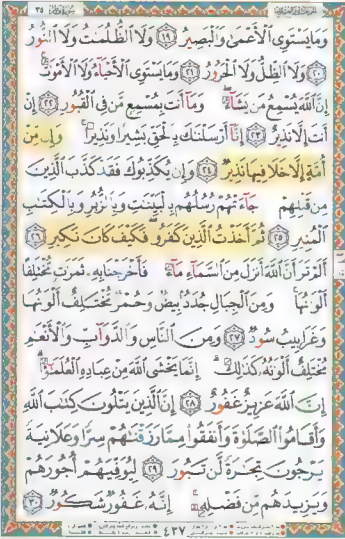 وَمَا يَسْتَوِى الْأَعْمَىٰ وَالْبَصِيرُ ۝١٩ وَلَا الظُّلُمَٰتُ وَلَا النُّورُ
۝٢٠ وَلَا الظِّلُّ وَلَا الْحَرُورُ ۝٢١ وَمَا يَسْتَوِى الْأَحْيَآءُ وَلَا الْأَمْوَٰتُ
إِنَّ اللَّهَ يُسْمِعُ مَن يَشَآءُ وَمَآ أَنتَ بِمُسْمِعٍ مَّن فِى الْقُبُورِ ۝٢٢ إِنْ
أَنتَ إِلَّا نَذِيرٌ ۝٢٣ إِنَّآ أَرْسَلْنَٰكَ بِالْحَقِّ بَشِيرًا وَنَذِيرًا وَإِن مِّنْ
أُمَّةٍ إِلَّا خَلَا فِيهَا نَذِيرٌ ۝٢٤ وَإِن يُكَذِّبُوكَ فَقَدْ كَذَّبَ الَّذِينَ
مِن قَبْلِهِمْ جَآءَتْهُمْ رُسُلُهُم بِالْبَيِّنَٰتِ وَبِالزُّبُرِ وَبِالْكِتَٰبِ
الْمُنِيرِ ۝٢٥ ثُمَّ أَخَذْتُ الَّذِينَ كَفَرُوا فَكَيْفَ كَانَ نَكِيرِ ۝٢٦
أَلَمْ تَرَ أَنَّ اللَّهَ أَنزَلَ مِنَ السَّمَآءِ مَآءً فَأَخْرَجْنَا بِهِ ثَمَرَٰتٍ مُّخْتَلِفًا
أَلْوَٰنُهَا وَمِنَ الْجِبَالِ جُدَدٌ بِيضٌ وَحُمْرٌ مُّخْتَلِفٌ أَلْوَٰنُهَا
وَغَرَابِيبُ سُودٌ ۝٢٧ وَمِنَ النَّاسِ وَالدَّوَآبِّ وَالْأَنْعَٰمِ
مُخْتَلِفٌ أَلْوَٰنُهُ كَذَٰلِكَ إِنَّمَا يَخْشَى اللَّهَ مِنْ عِبَادِهِ الْعُلَمَٰٓؤُا
إِنَّ اللَّهَ عَزِيزٌ غَفُورٌ ۝٢٨ إِنَّ الَّذِينَ يَتْلُونَ كِتَٰبَ اللَّهِ
وَأَقَامُوا الصَّلَوٰةَ وَأَنفَقُوا مِمَّا رَزَقْنَٰهُمْ سِرًّا وَعَلَانِيَةً
يَرْجُونَ تِجَٰرَةً لَّن تَبُورَ ۝٢٩ لِيُوَفِّيَهُمْ أُجُورَهُمْ
وَيَزِيدَهُم مِّن فَضْلِهِ إِنَّهُ غَفُورٌ شَكُورٌ ۝٣٠
٤٣٧